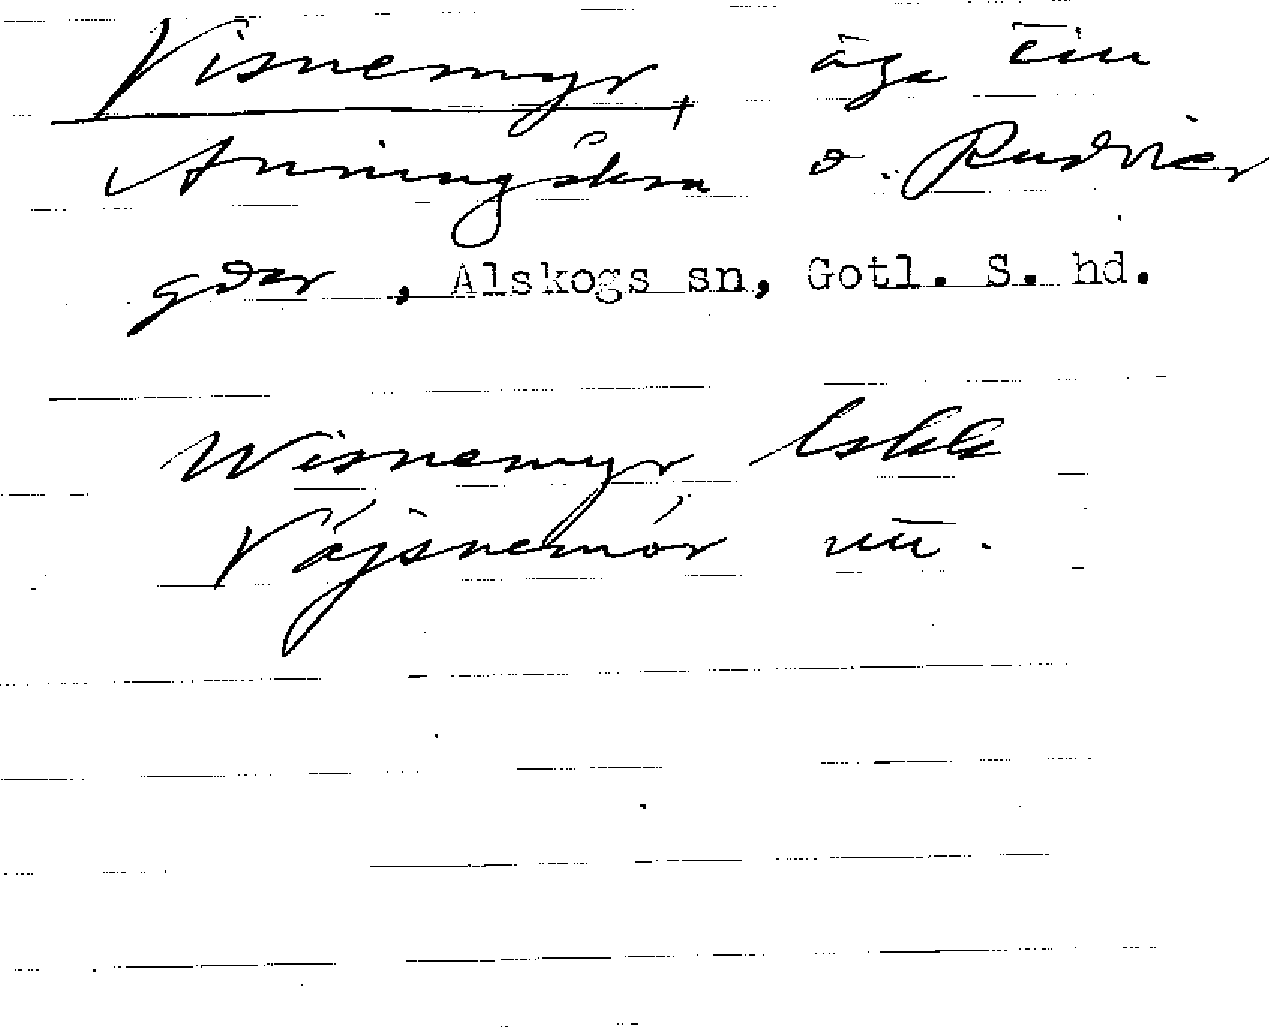 Visnemyr, äga till
Anningåkra o. Rudvier
gdar, Alskogs sn, Gotl. S. hd.
Wisnemyr lskk
Vájsnemór uu.